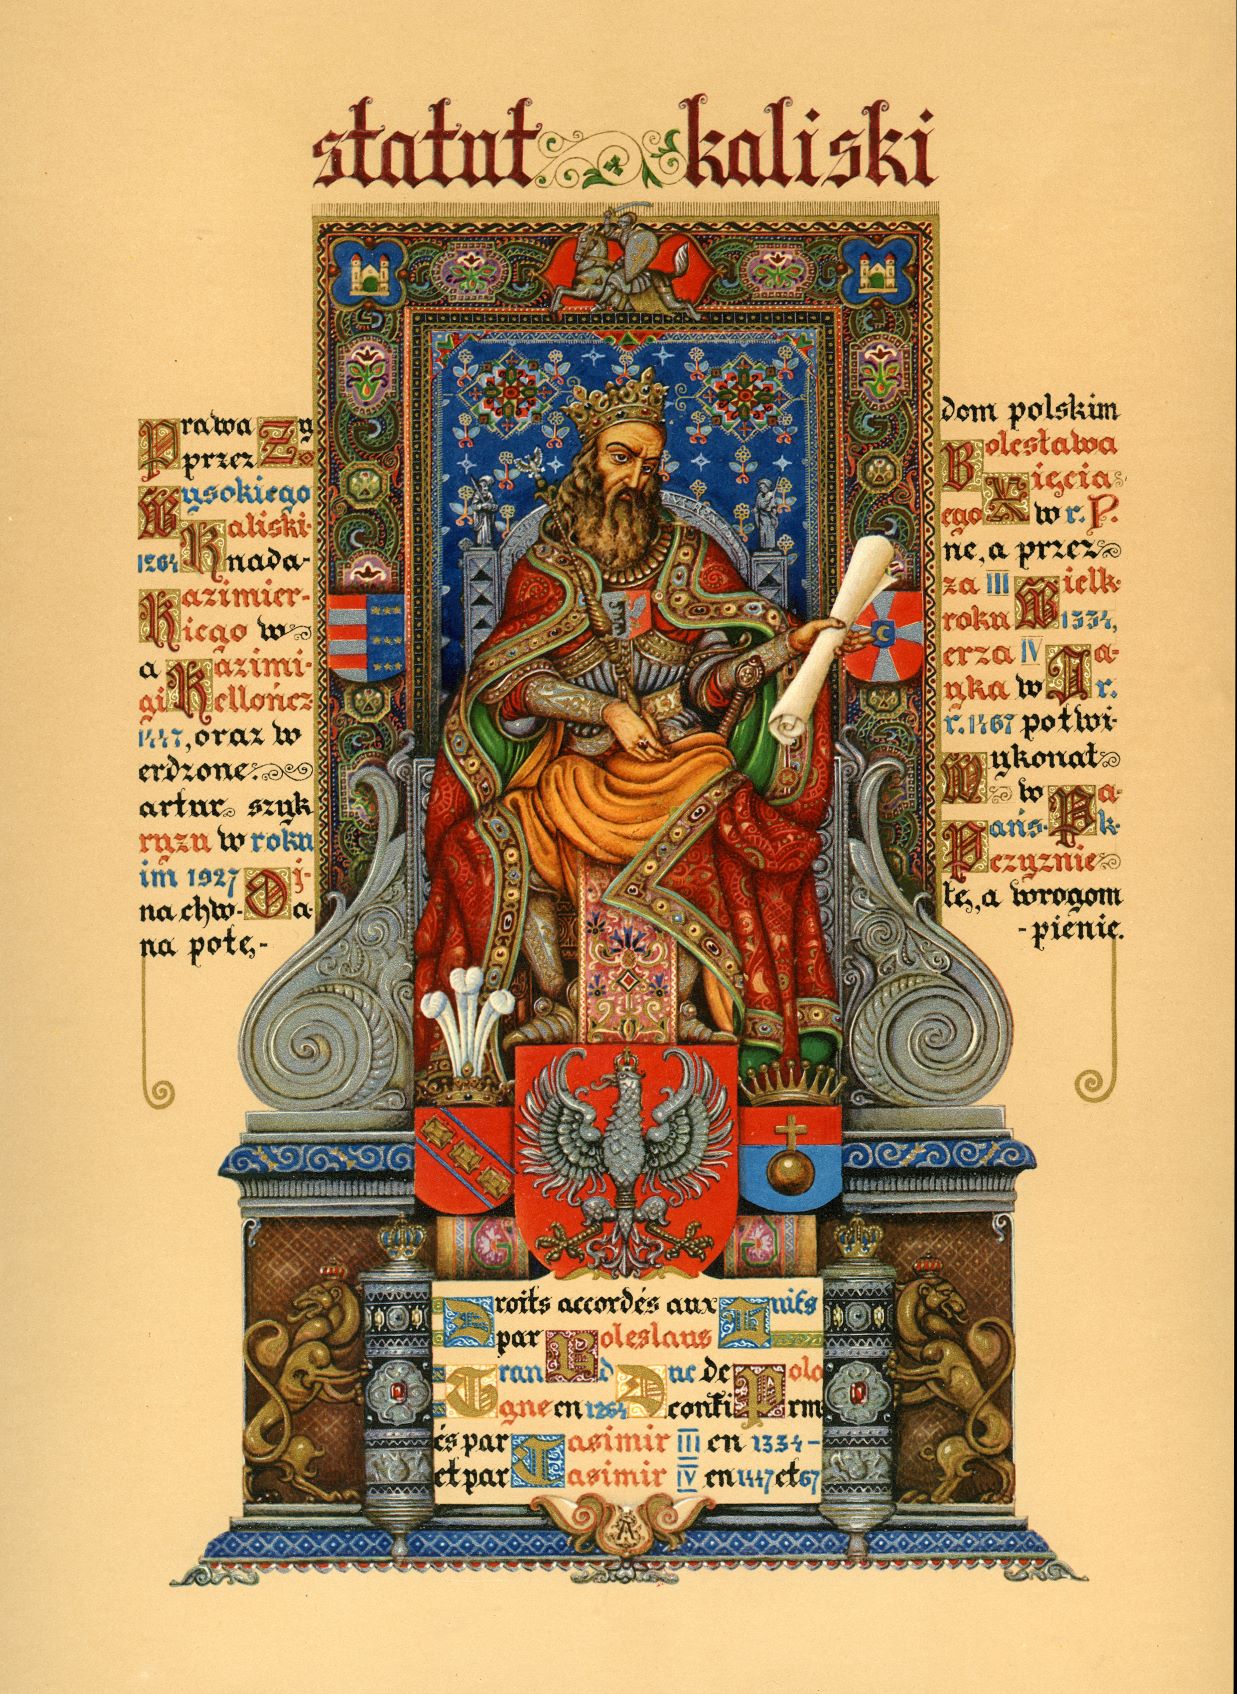 statut kaliski
Prawa Ży dom polskim
przez Bolesława
Wysokiego Xięcia
Kaliski- ego w r. P.
1264 nada- ne, a przez
Kazimier- za III Wielk-
iego w roku 1334,
a Kazimi- erza IV Ja-
giellończ yka w r.
1447, oraz w r. 1467 potwi-
erdzone. Wykonał
artur szyk w Pa-
ryżu w roku Pańs- k-
im 1927 Oj- czyznie
na chw- a- łę, a wrogom
na potę,- -pienie.
Droits accordés aux Juifs
par Boleslaus
Grand Duc de Polo
gne en 1264 confirm
és par Casimir III en 1334-
et par Casimir IV en 1447 et 67